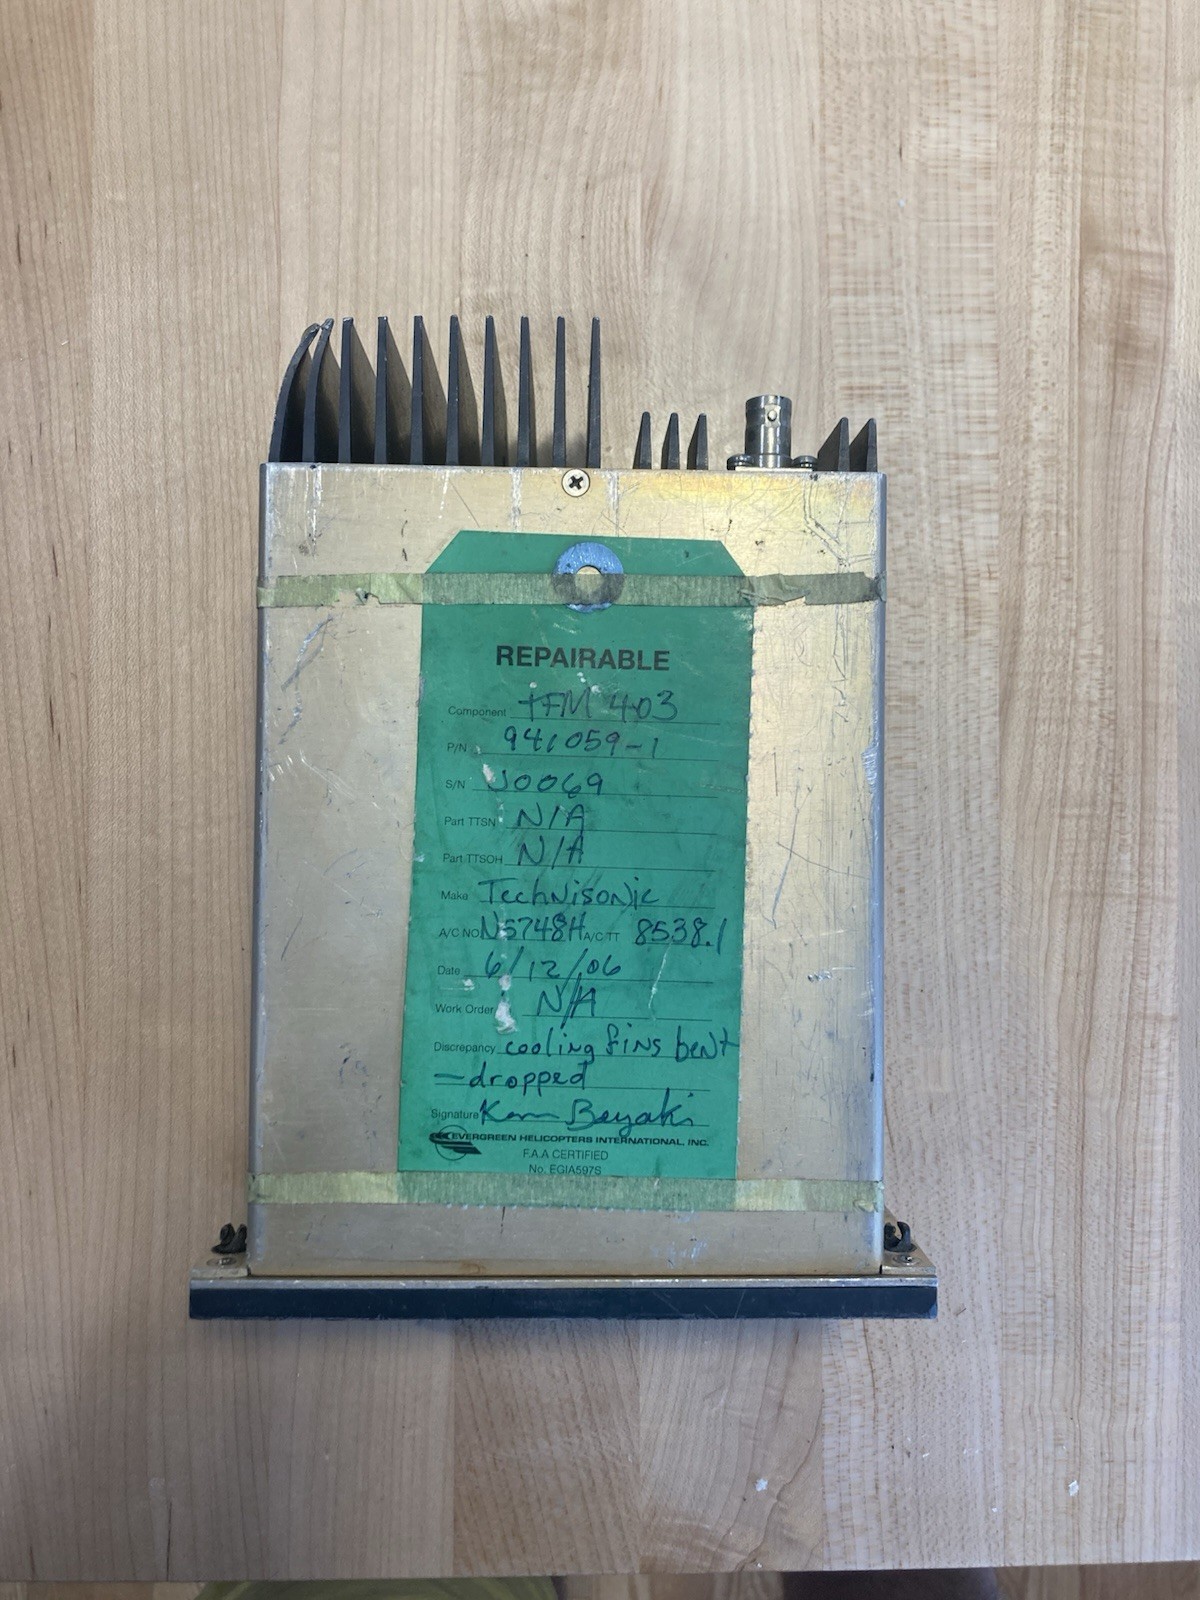 REPAIRABLE
Component TFM 403
P/N 941059-1
S/N J0069
Part TTSN N/A
Part TTSOH N/A
Make Technisonic
A/C NO. N5748H A/C TT 8538.1
Date 6/12/06
Work Order N/A
Discrepancy cooling fins bent
- dropped
Signature
EVERGREEN HELICOPTERS INTERNATIONAL, INC.
F.A.A CERTIFIED
No. EGIA597S